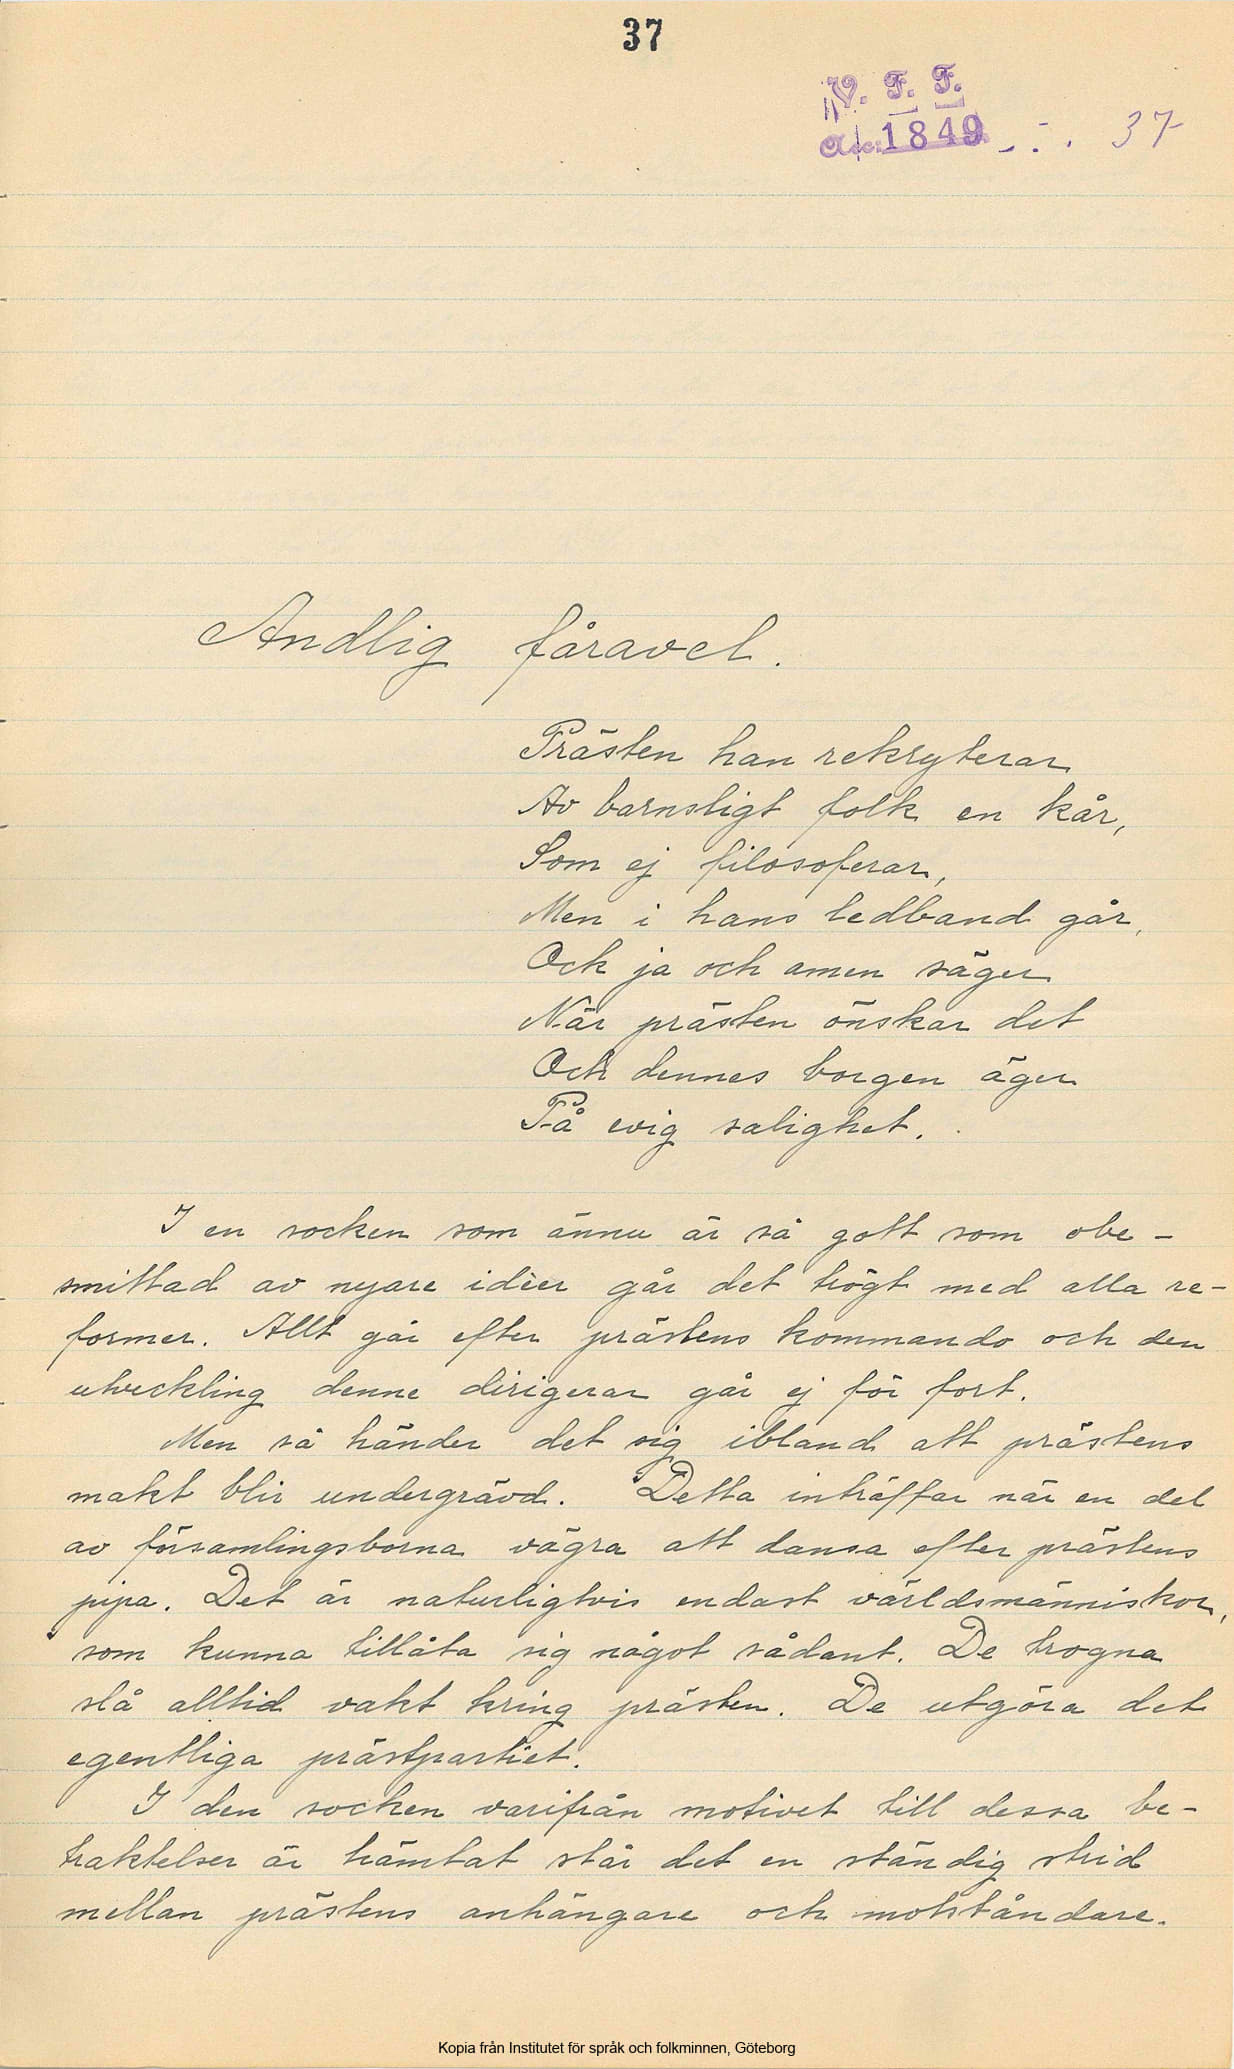 37
V. F. F.
Acc. 1849 37
Andlig fåravel.
Prästen han rekryterar
Av barnsligt folk en kår,
Som ej filosoferar,
Men i hans ledband går,
Ock ja och amen säger
När prästen önskar det
Och dennes borgen äger
På evig salighet.
I en socken som ännu är så gott som obe-
smittad av nyare idèer går det trögt med alla re-
former. Allt går efter prästens kommando och den
utveckling denne dirigerar går ej för fort.
Men så händer det sig ibland att prästens
makt blir undergrävd. Detta inträffar när en del
av församlingsborna vägra att dansa efter prästens
pipa. Det är naturligtvis endast världsmänniskor,
som kunna tillåta sig något sådant. De trogna
slå alltid vakt kring prästen. De utgöra det
egentliga prästpartiet.
I den socken varifrån motivet till dessa be-
traktelser är hämtat står det en ständig strid
mellan prästens anhängare och motståndare.
Kopia från Institutet för språk och folkminnen, Göteborg